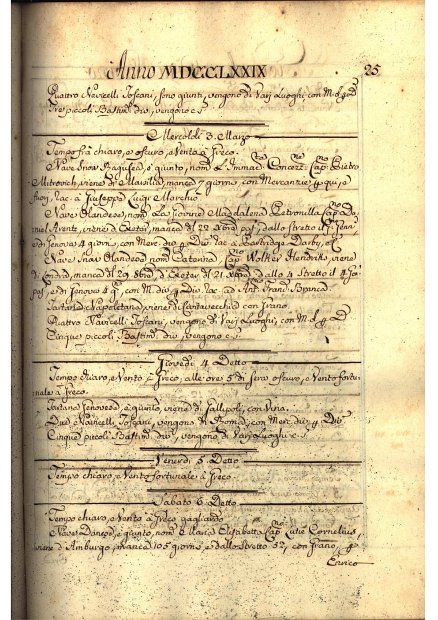 Anno MDCCLXXIX 25
Quattro Navicelli Toscani, sono giunti, vengono di Varj Luoghi, con M. d. g. D.
Tre piccoli Bastim. div., vengono c.s.
Mercoldì 3. Marzo
Tempo frà chiaro, e oscuro, e Vento à Greco.
Nave Snow Raguseo, è giunto, nom. L'Immac. Concez. Cap. Pietro
Mitrovich, viene di Marsilia, manca 7 giorni, con Mercanzie p. qui, e
rac. à Giuseppe Luigi Marchiò
Nave Olandese, nom. La Giovine Maddalena Petronilla Cap. Da-
niel viene di Exeter, manca dì 22 pas., dallo stretto il
e di Genova 4 giorni, con Merc. div. p. Div. rac. à Partridge Darby, e C.
Nave Snow Olandese nom. Caterina, Cap. Wolker Hendriks, viene
di Londra, manca dì 29 d'Exeter dì 21 dallo Stretto il 4
pas. e di Genova 4 g. con M. div. p. Div. rac. ad Ant. Franc. Branca.
Tartana Napoletana, viene di Civitavecchia con Grano.
Quattro Navicelli Toscani, vengono di Varj Luoghi, con M. d. p. D.
Cinque piccoli Bastim. div., vengono c.s.
Giovedì 4 Detto
Tempo chiaro, e Vento à Greco, alle ore 5 di sera oscuro, e Vento fortu-
nale à Greco.
Tartana Genovese è giunta, viene di Gallipoli, con Vino.
Due Navicelli Toscani, vengono di Roma, con Merc. div. p. Div.
Cinque piccoli Bastim. div., vengono di Varj Luoghi c.s.
Venerdì 5 Detto
Tempo chiaro, e Vento fortunale à Greco.
Sabato 6 Detto
Tempo chiaro, e Vento à Greco gagliardo
Nave Danese, è giunto, nom. Maria Elisabetta Cap. Cornelius,
viene d'Amburgo, manca 105 giorni, e dallo Stretto 52, con Grano, p.
Enrico